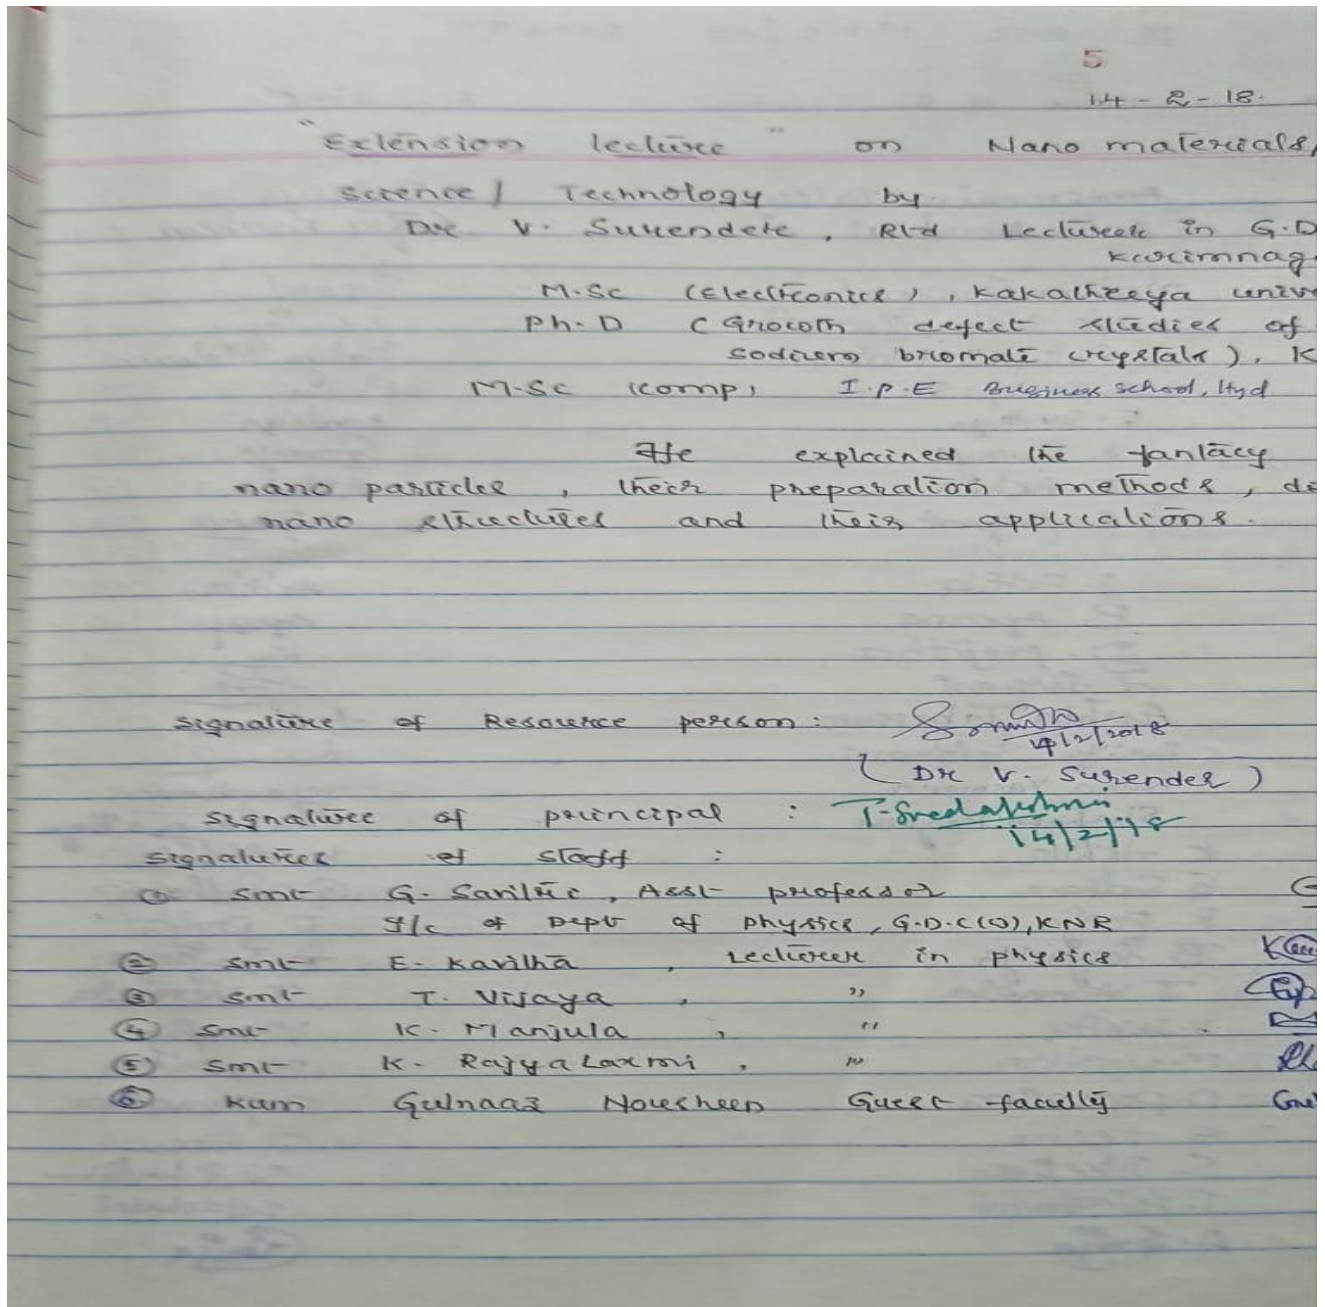 5
14-2-18.
"Extension lecture" on Nano materials,
Science / Technology by
Dr V. Surender, Rtd Lecturer in G.D
Karimnag
M.Sc (Electronics), Kakatheeya univ
Ph.D (Growth defect studies of
sodium bromate crystals), K
M.Sc (comp) I.P.E Business School, Hyd
He explained the fantacy
nano particles, their preparation methods, de
nano structures and their applications.
Signature of Resource person:
14/2/2018
(Dr V. Surender)
Signature of principal :
14/2/18
Signatures of staff :
① Smt G. Sarithe, Asst professor
I/c of Dept of physics, G.D.C(W), KNR
② Smt E. Kavitha, lecturer in physics
③ Smt T. Vijaya, "
④ Smt K. Manjula, "
⑤ Smt K. Rajya Laxmi, "
⑥ Kum Gulnaaz Nousheen Guest faculty